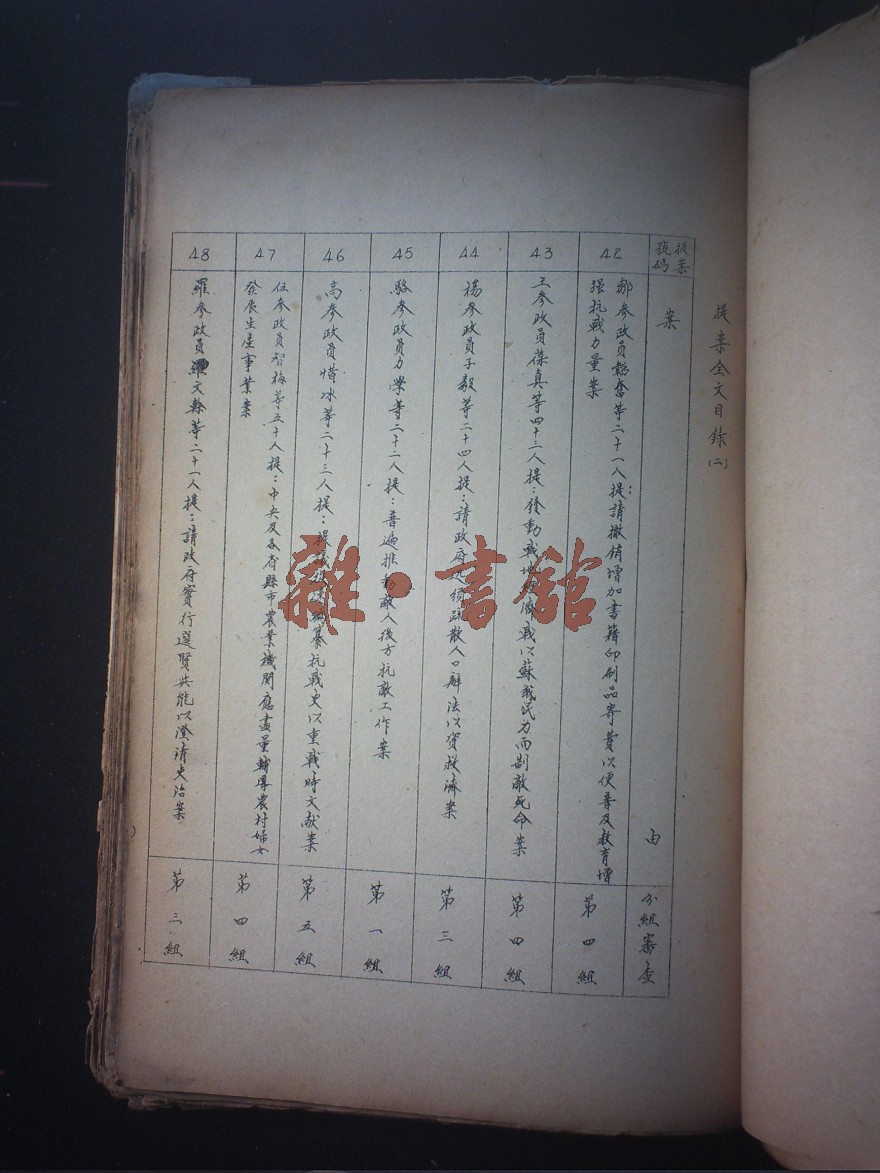 提案全文目録(二)
提案號碼
案由
分組審查
42
鄒參政員韜奮等二十一人提:請撤銷增加書籍印刷品寄費以便普及教育增
强抗戰力量案
第四組
43
王參政員葆真等四十三人提:發動戰地經濟戰以蘇我民力而制敵死命案
第四組
44
楊參政員子毅等二十四人提:請政府疏散人口辦法以資救濟案
第三組
45
駱參政員力學等二十二人提:普遍推動敵人後方抗敵工作案
第一組
46
高參政員惜冰等二十三人提:編纂抗戰史以重戰時文献案
第五組
47
伍參政員智梅等五十人提:中央及各省縣市農業機関應盡量輔導農村婦女
發展生産事業案
第四組
48
羅參政員文等二十一人提:請政府實行選賢共能以澄清吏治案
第三組
雜·書館